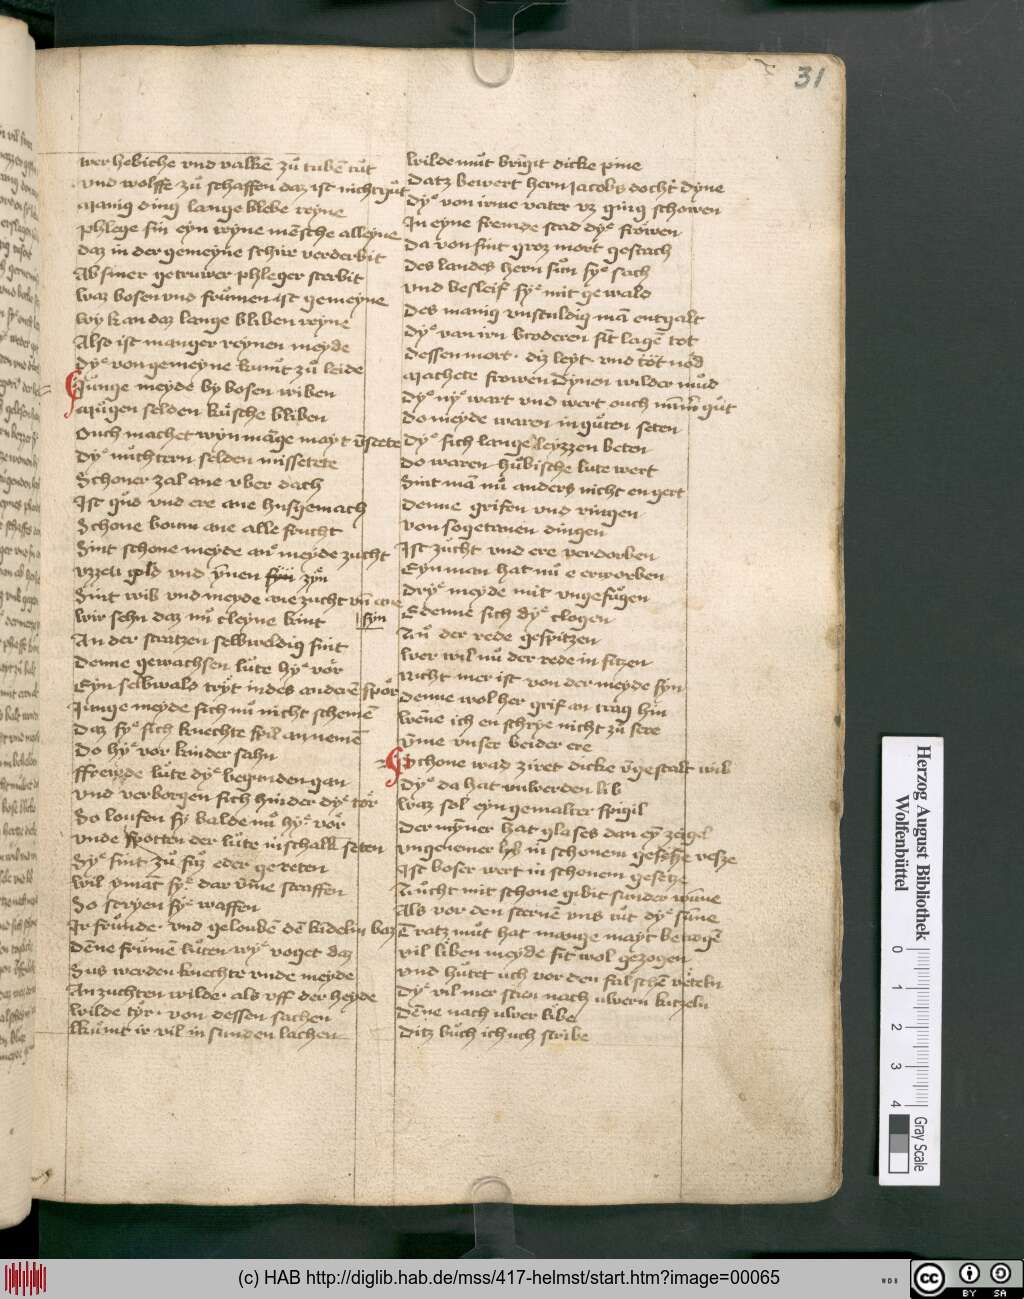 31
wer hebiche vnd valkē zů tubē tůt
vnd wolffe zů schaffen daz ist nicht gůt
Manig ding lange blebe reyne
phlege sin eyn reyne mēsche alleyne
daz in der gemeyne schir verderbit
Ab siner getruwer phleger sterbit
waz bosen vnd frůmen ist gemeyne
wy kan daz lange bliben reyne
Also ist manger reynen meyde
dyͤ von gemeyne kumt zů leide
Junge meyde by bosen wiben
Mugen selden kůsche bliben
Ouch machet wyn māge mayt
dyͤ nůchtern selden missetete
Schoner zal ane vber dach
Ist gůd vnd ere ane husgemach
Schone boum ane alle frucht
Sint schone meyde anͤ meyde zucht
vzzen gold vnd ynen zyn
Sint wib vnd meyde ane zucht vn̄ ane syn
wir sehn daz nů cleyne kint
An der stratzen selbweldig sint
Denne gewachsen lute hyͤ vor
Eyn selbwalt tryt in des anderē spor
Junge meyde sich nů nicht schemē
Daz syͤ sich knechte spil an nemē
Do hyͤ vor kinder sahn
ffremde lute dyͤ begunden gan
vnd verborgen sich hinder dyͤ tör
So loufen sy balde nů hyͤ vor
vnde spotten der lute in schalk seten
Syͤ sint zů fuz oder gereten
wil ymāt syͤ dar vm̄e straffen
So scryen syͤ waffen
Ir frunde vnd gelouben dē kindeln baz
Dēne frumē luten wyͤ voget daz
Sus werden knechte vnde meyde
An zuchten wilde als vff der heyde
wilde tyr von dessen sachen
kumt ir vil in sunden lachen
wilde mut bringit dicke pine
Datz bewert hern Jacobs docht dyne
Dyͤ von irme vater vz ging schowen
In eyne fremde stad dyͤ frowen
Da von sint groz mort geschach
des landes hern sůn syͤ sach
vnd besleif syͤ mit gewald
Des manig vnsculdig mā entgalt
dyͤ van irn brodern sīt lagē tot
dessen mort diz leyt vnd
Machete frowen dynen wilder mud
dyͤ nyͤ wart vnd wert ouch gůt
do meyde waren in gůten seten
dyͤ sich lange leyzzen beten
do waren hubische lute wert
Sint mā nů anders nicht en gert
denne grifen vnd ringen
von sogetanen dingen
Ist zucht vnd ere verdorben
Eyn man hat nů e erworben
Dryͤ meyde mit vngefugen
E denne sich dyͤ clogen
Nů der rede gespitzen
wer wil nů der rede in sitzen
Nicht mer ist von der meyde syn
denne wol her grif an trag hin
wēne ich en schrye nicht zů sere
vm̄e vnser beider ere
Schone wad ziret dicke vngestalt wib
Dyͤ da hat vnwerden lib
waz sol eyn gemalter spigil
Der myner hat glases dan zeigil
vngenemer lyb in schonem gesetze
Ist boser wert in schonem gesetze
Zucht mit schone gibit sunder wāne
Als vor den sternē vns tut dyͤ sūne
Tratz mut hat mange mayt betrogē
vil liben meyde sīt wol gezogen
vnd hutet uch vor den falschē veteln
Dyͤ vil mer sten nach uwern kitzeln
dēne nach uwer libe
ditz buch ich uch scribe
Herzog August Bibliothek
Wolfenbüttel
0 1 2 3 4
Gray Scale
(c) HAB http://diglib.hab.de/mss/417-helmst/start.htm?image=00065
WDB
cc
BY SA